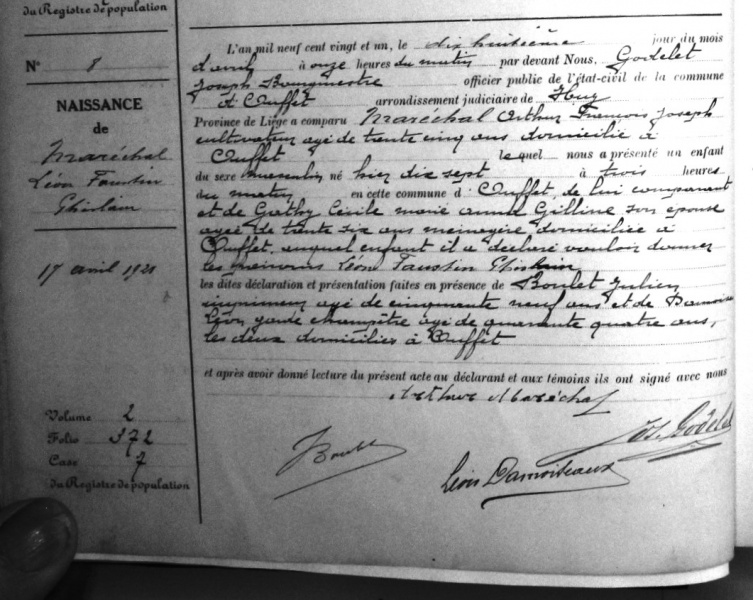 du Registre de population
N° 8
NAISSANCE
de
Maréchal
Léon Faustin
Ghislain
17 avril 1921
Volume 2
Folio 372
Case 7
du Registre de population
L'an mil neuf cent vingt et un, le dix huitième jour du mois
d'avril à onze heures du matin par devant Nous, Godelet
Joseph Bourgmestre officier public de l'état-civil de la commune
d'Ouffet arrondissement judiciaire de Huy
Province de Liège a comparu Maréchal Arthur François Joseph
cultivateur agé de trente cinq ans domicilié à
Ouffet lequel nous a présenté un enfant
du sexe masculin né hier dix sept à trois heures
du matin en cette commune d'Ouffet, de lui comparant
et de Gathy Cécile Marie Anna Gilline son épouse
agée de trente six ans ménagère domiciliée à
Ouffet, auquel enfant il a déclaré vouloir donner
les prénoms Léon Faustin Ghislain
les dites déclaration et présentation faites en présence de Boulet Julien
imprimeur agé de cinquante neuf ans et de Damoiseaux
Léon, garde champêtre agé de quarante quatre ans,
les deux domiciliés à Ouffet
et après avoir donné lecture du présent acte au déclarant et aux témoins ils ont signé avec nous
Arthur Maréchal
J Boulet
Jos. Godelet
Léon Damoiseaux